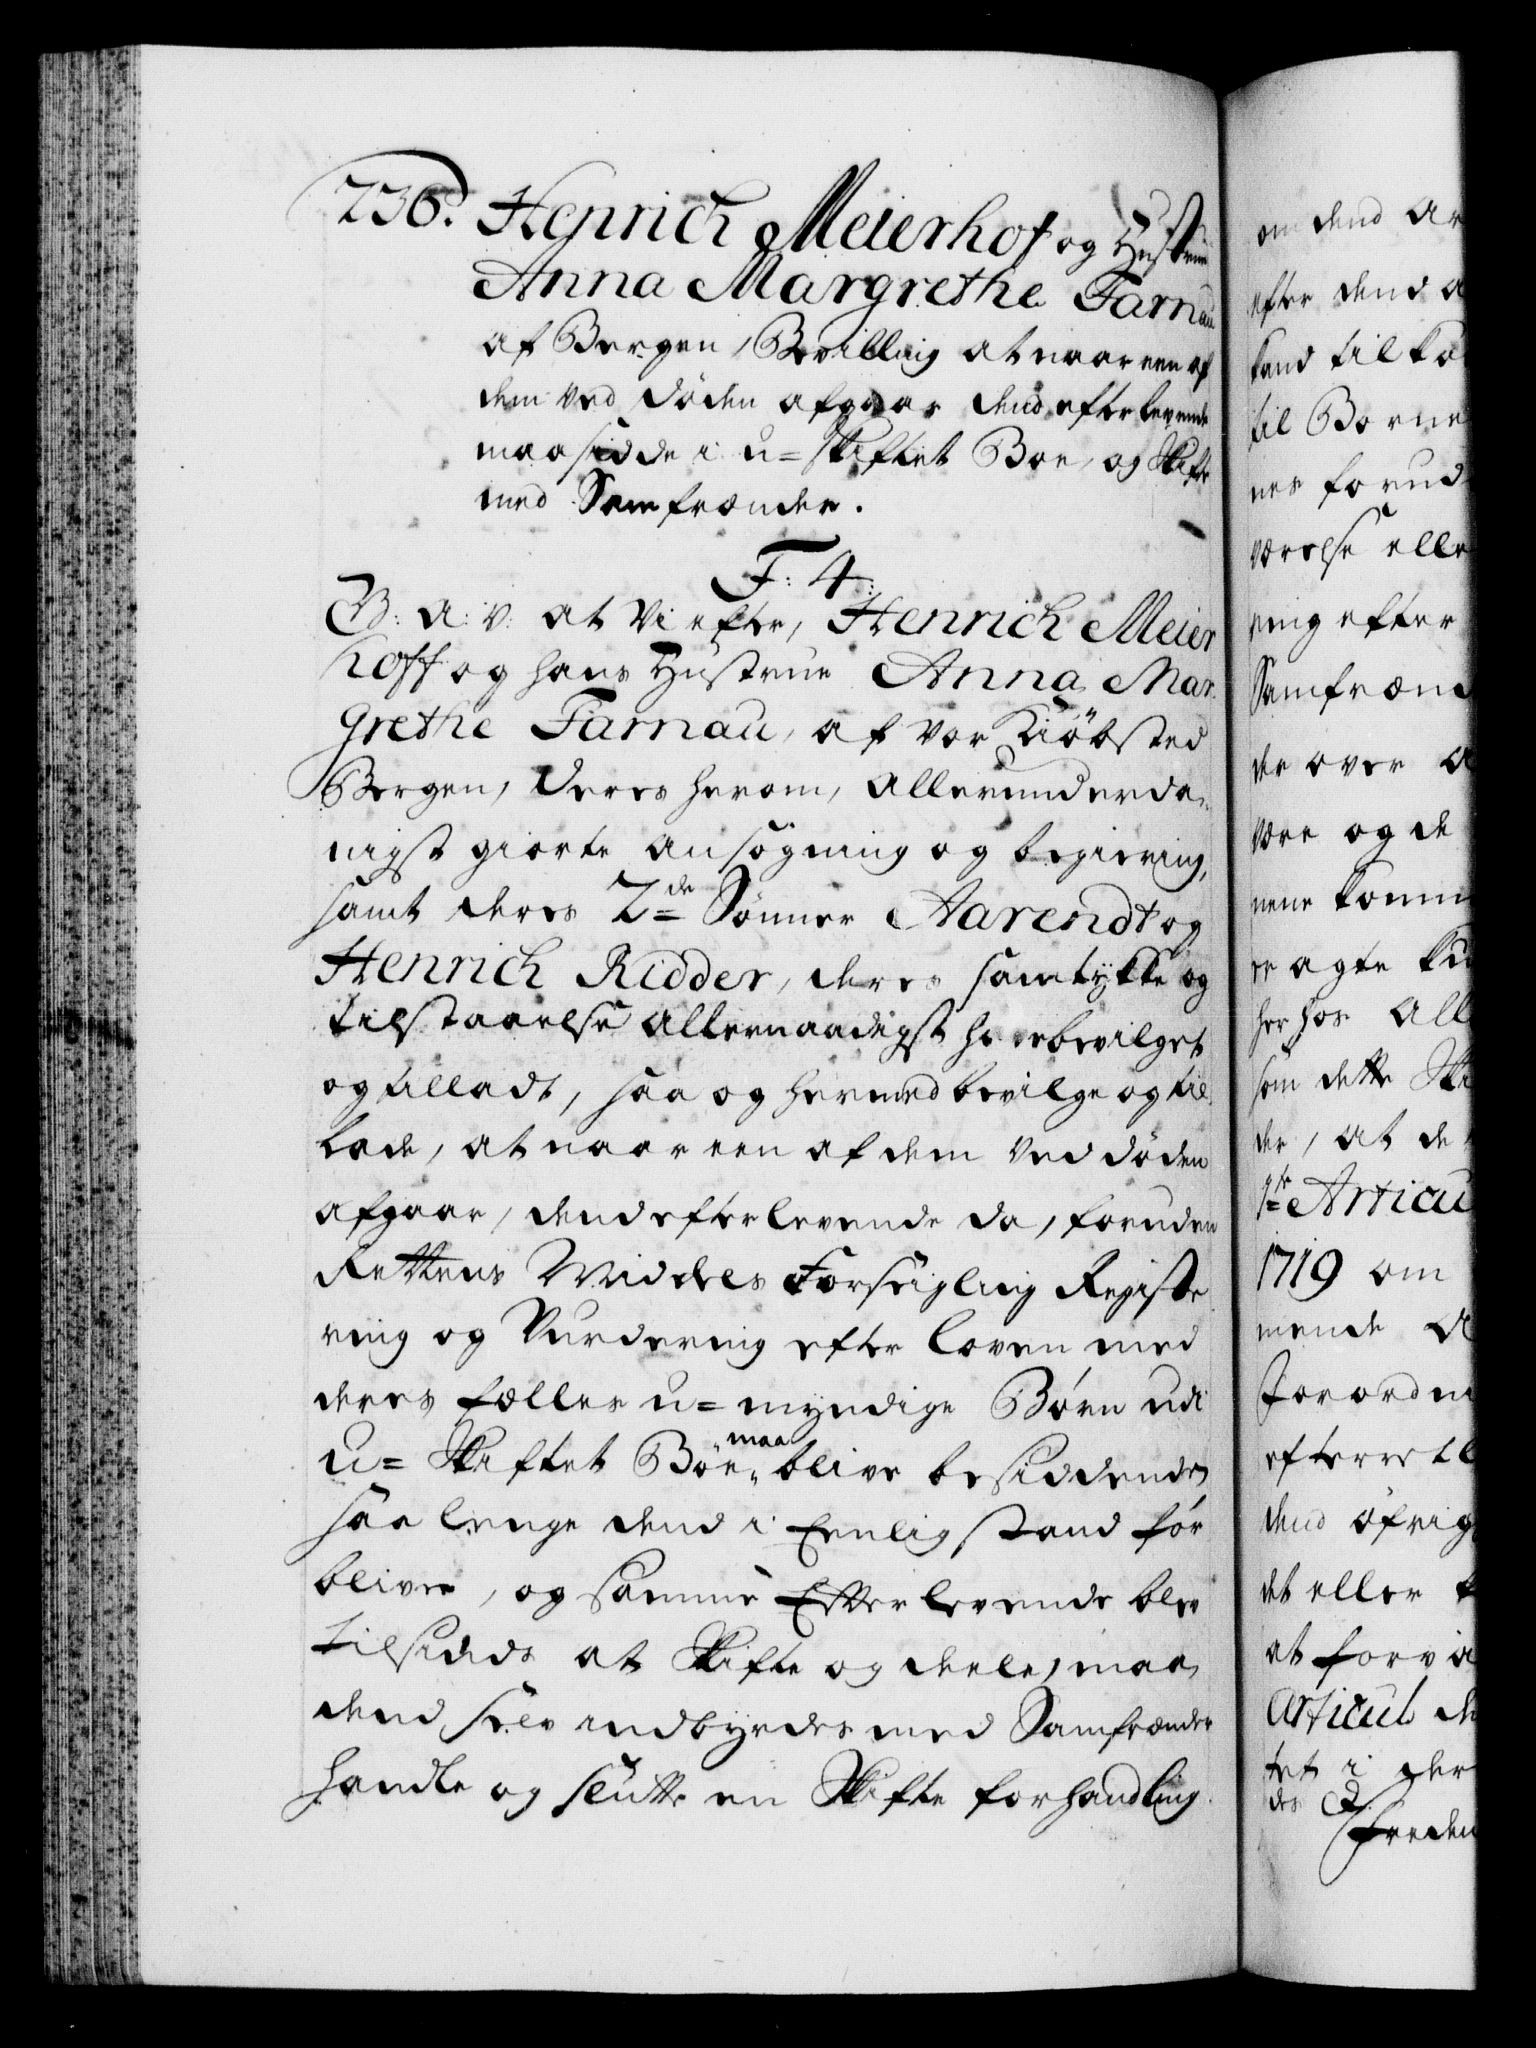 236. Henrich Meierhof og Hustrue
Anna Margrethe Farnau
af Bergen, Bevilling at naar een af
dem ved Døden afgaar dend efterlevende
maa sidde i u=skiftet Boe, og skifte
med Samfrænder.
F: 4:
G: A: V: at Vi efter, Henrich Meier
hoff og hans Hustrue Anna Mar-
grethe Farnau, af vor Kiöbsted
Bergen, deres herom, allerunderda-
nigst giorte ansøgning og begiering,
samt deres 2de Sønner Aarendt og
Henrich Ridder, deres samtykke og
tilstaaelse allernaadigst have bevilget
og tilladt, saa og hermed bevilge og til-
lade, at naar een af dem ved døden
afgaar, dend efterlevende da, foruden
Rettens Middels Forseigling Registe-
ring og Vurdering efter loven med
deres fælles u=myndige Børn udi
u=skiftet Boe maa blive besiddende
saa lenge dend i Eenlig stand for
bliver, og samme Efterlevende blev
tilsinds at skifte og deele, maa
dend selv indbyrdes med Samfrænder
handle og slutte en Skifte forhandling
om dend
efter dend
kand til
til Børne
nes forud
værelse elle
ning efter
Samfrænd
de over
være og de
nene komm
er agte
her hos All
som dette Ski
der, at de
1ste Articu
1719 om
mende
Forordni
efterretl
dend öfrig
det eller
at forva
Articul de
tet i der
des
Freden